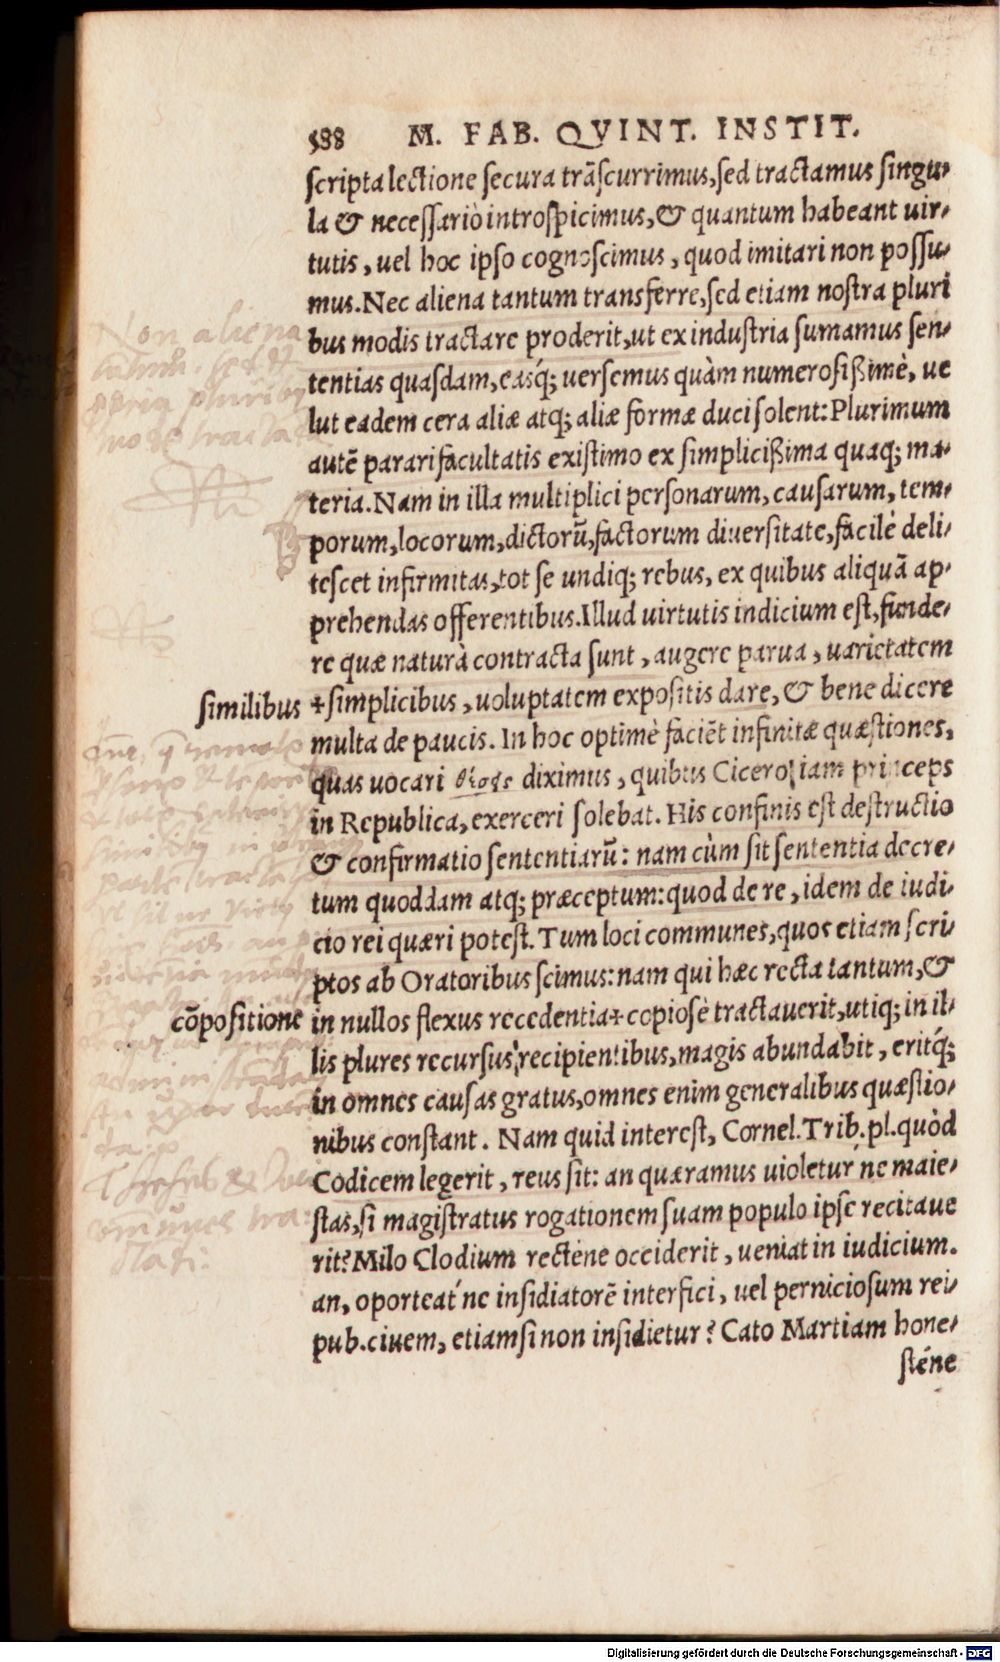 588 M. FAB. QVINT. INSTIT.
ſcripta lectione ſecura trãſcurrimus, ſed tractamus ſingu-
la & neceſſariò introſpicimus, & quantum habeant uir-
tutis, uel hoc ipſo cognoſcimus, quod imitari non poſſu-
mus. Nec aliena tantum transferre, ſed etiam noſtra pluri
bus modis tractare proderit, ut ex induſtria ſumamus ſen-
tentias quaſdam, easq́; uerſemus quàm numeroſißimè, ue
lut eadem cera aliæ atq; aliæ formæ duci ſolent: Plurimum
autẽ parari facultatis exiſtimo ex ſimplicißima quaq; ma-
teria. Nam in illa multiplici perſonarum, cauſarum, tem-
porum, locorum, dictorũ, factorum diuerſitate, facilè deli-
teſcet infirmitas, tot ſe undiq; rebus, ex quibus aliquã ap-
prehendas offerentibus. Illud uirtutis indicium eſt, funde-
re quæ naturà contracta ſunt, augere parua, uarietatem
ſimilibus +ſimplicibus, uoluptatem expoſitis dare, & bene dicere
multa de paucis. In hoc optimè faciẽt infinitæ quæſtiones,
quas uocari diximus, quibus Cicero iam princeps
in Republica, exerceri ſolebat. His confinis eſt deſtructio
& confirmatio ſententiarũ: nam cùm ſit ſententia decre-
tum quoddam atq; præceptum: quod de re, idem de iudi-
cio rei quæri poteſt. Tum loci communes, quos etiam ſcri-
ptos ab Oratoribus ſcimus: nam qui hæc recta tantum, &
cõpoſitione in nullos flexus recedentia+copioſè tractauerit, utiq; in il-
lis plures recurſus recipientibus, magis abundabit, eritq́;
in omnes cauſas gratus, omnes enim generalibus quæſtio-
nibus conſtant. Nam quid intereſt, Cornel. Trib. pl. quòd
Codicem legerit, reus ſit: an quæramus uioletur ne maie-
ſtas, ſi magiſtratus rogationem ſuam populo ipſe recitaue
rit? Milo Clodium rectene occiderit, ueniat in iudicium.
an, oporteat́ ne inſidiatorẽ interfici, uel pernicioſum rei-
pub. ciuem, etiamſi non inſidietur? Cato Martiam hone-
ſténe
Non aliena
Digitalisierung gefördert durch die Deutsche Forschungsgemeinschaft - DFG